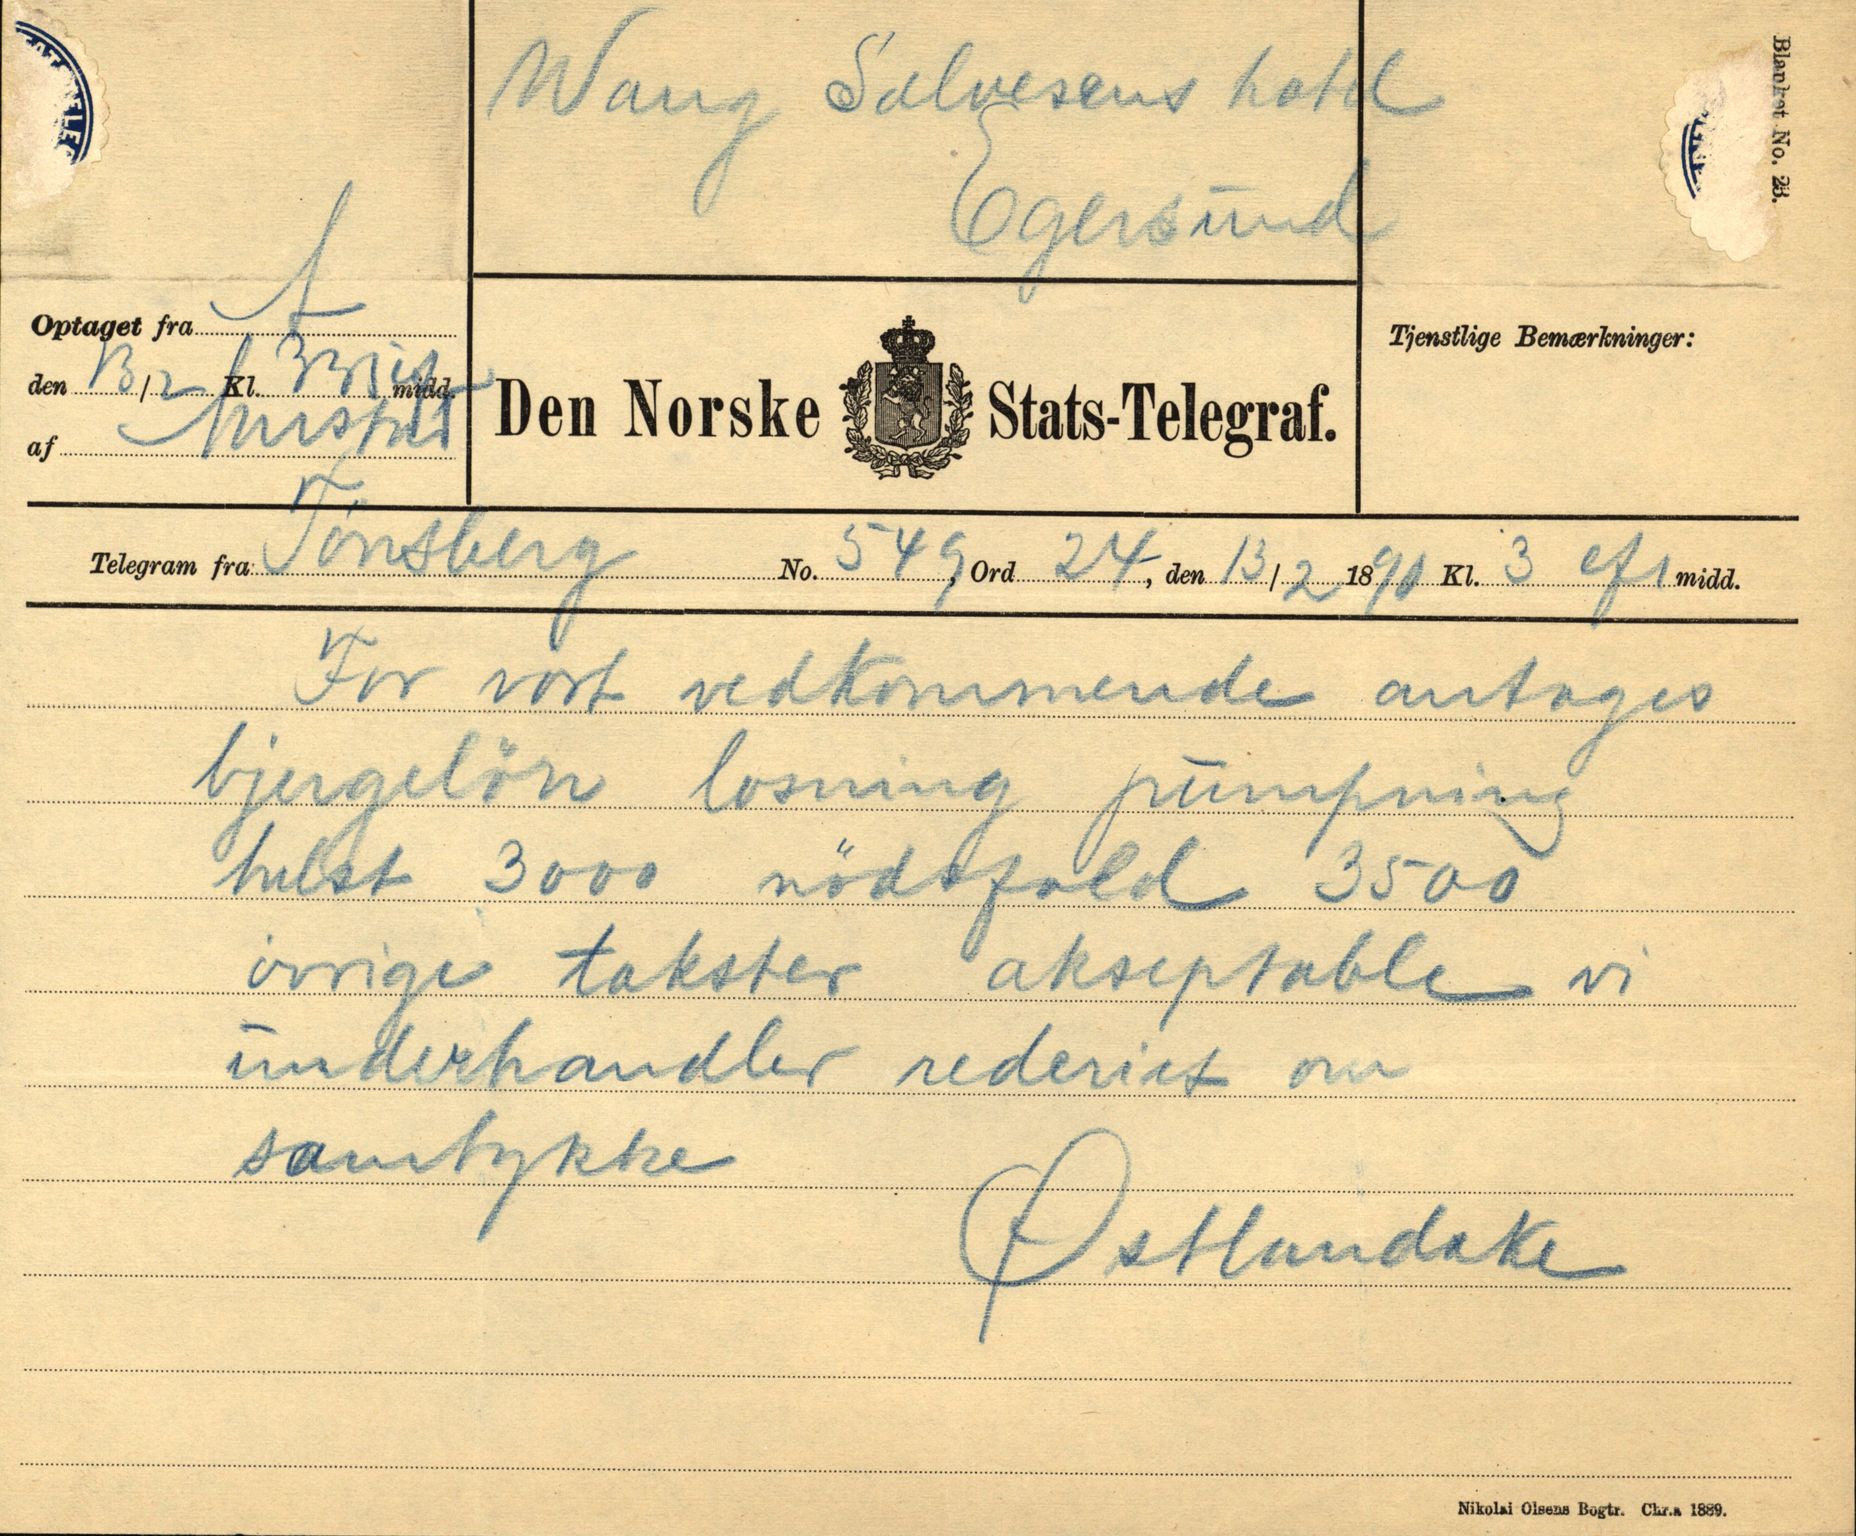 Wang Salvesens hotel
Egersund
Blanket No. 23.
Optaget fra A
den 13/2 Kl. midd.
af
Den Norske Stats-Telegraf.
Tjenstlige Bemærkninger:
Telegram fra Tönsberg No. 549, Ord 24, den 13/2 1890 Kl. 3 efr midd.
For vort vedkommende antages
bjergelön losning pumpning
helst 3000 nödsfald 3500
övrige takster akseptable vi
underhandler rederiet om
samtykke
Østlandske
Nikolai Olsens Bogtr. Chr.a 1889.